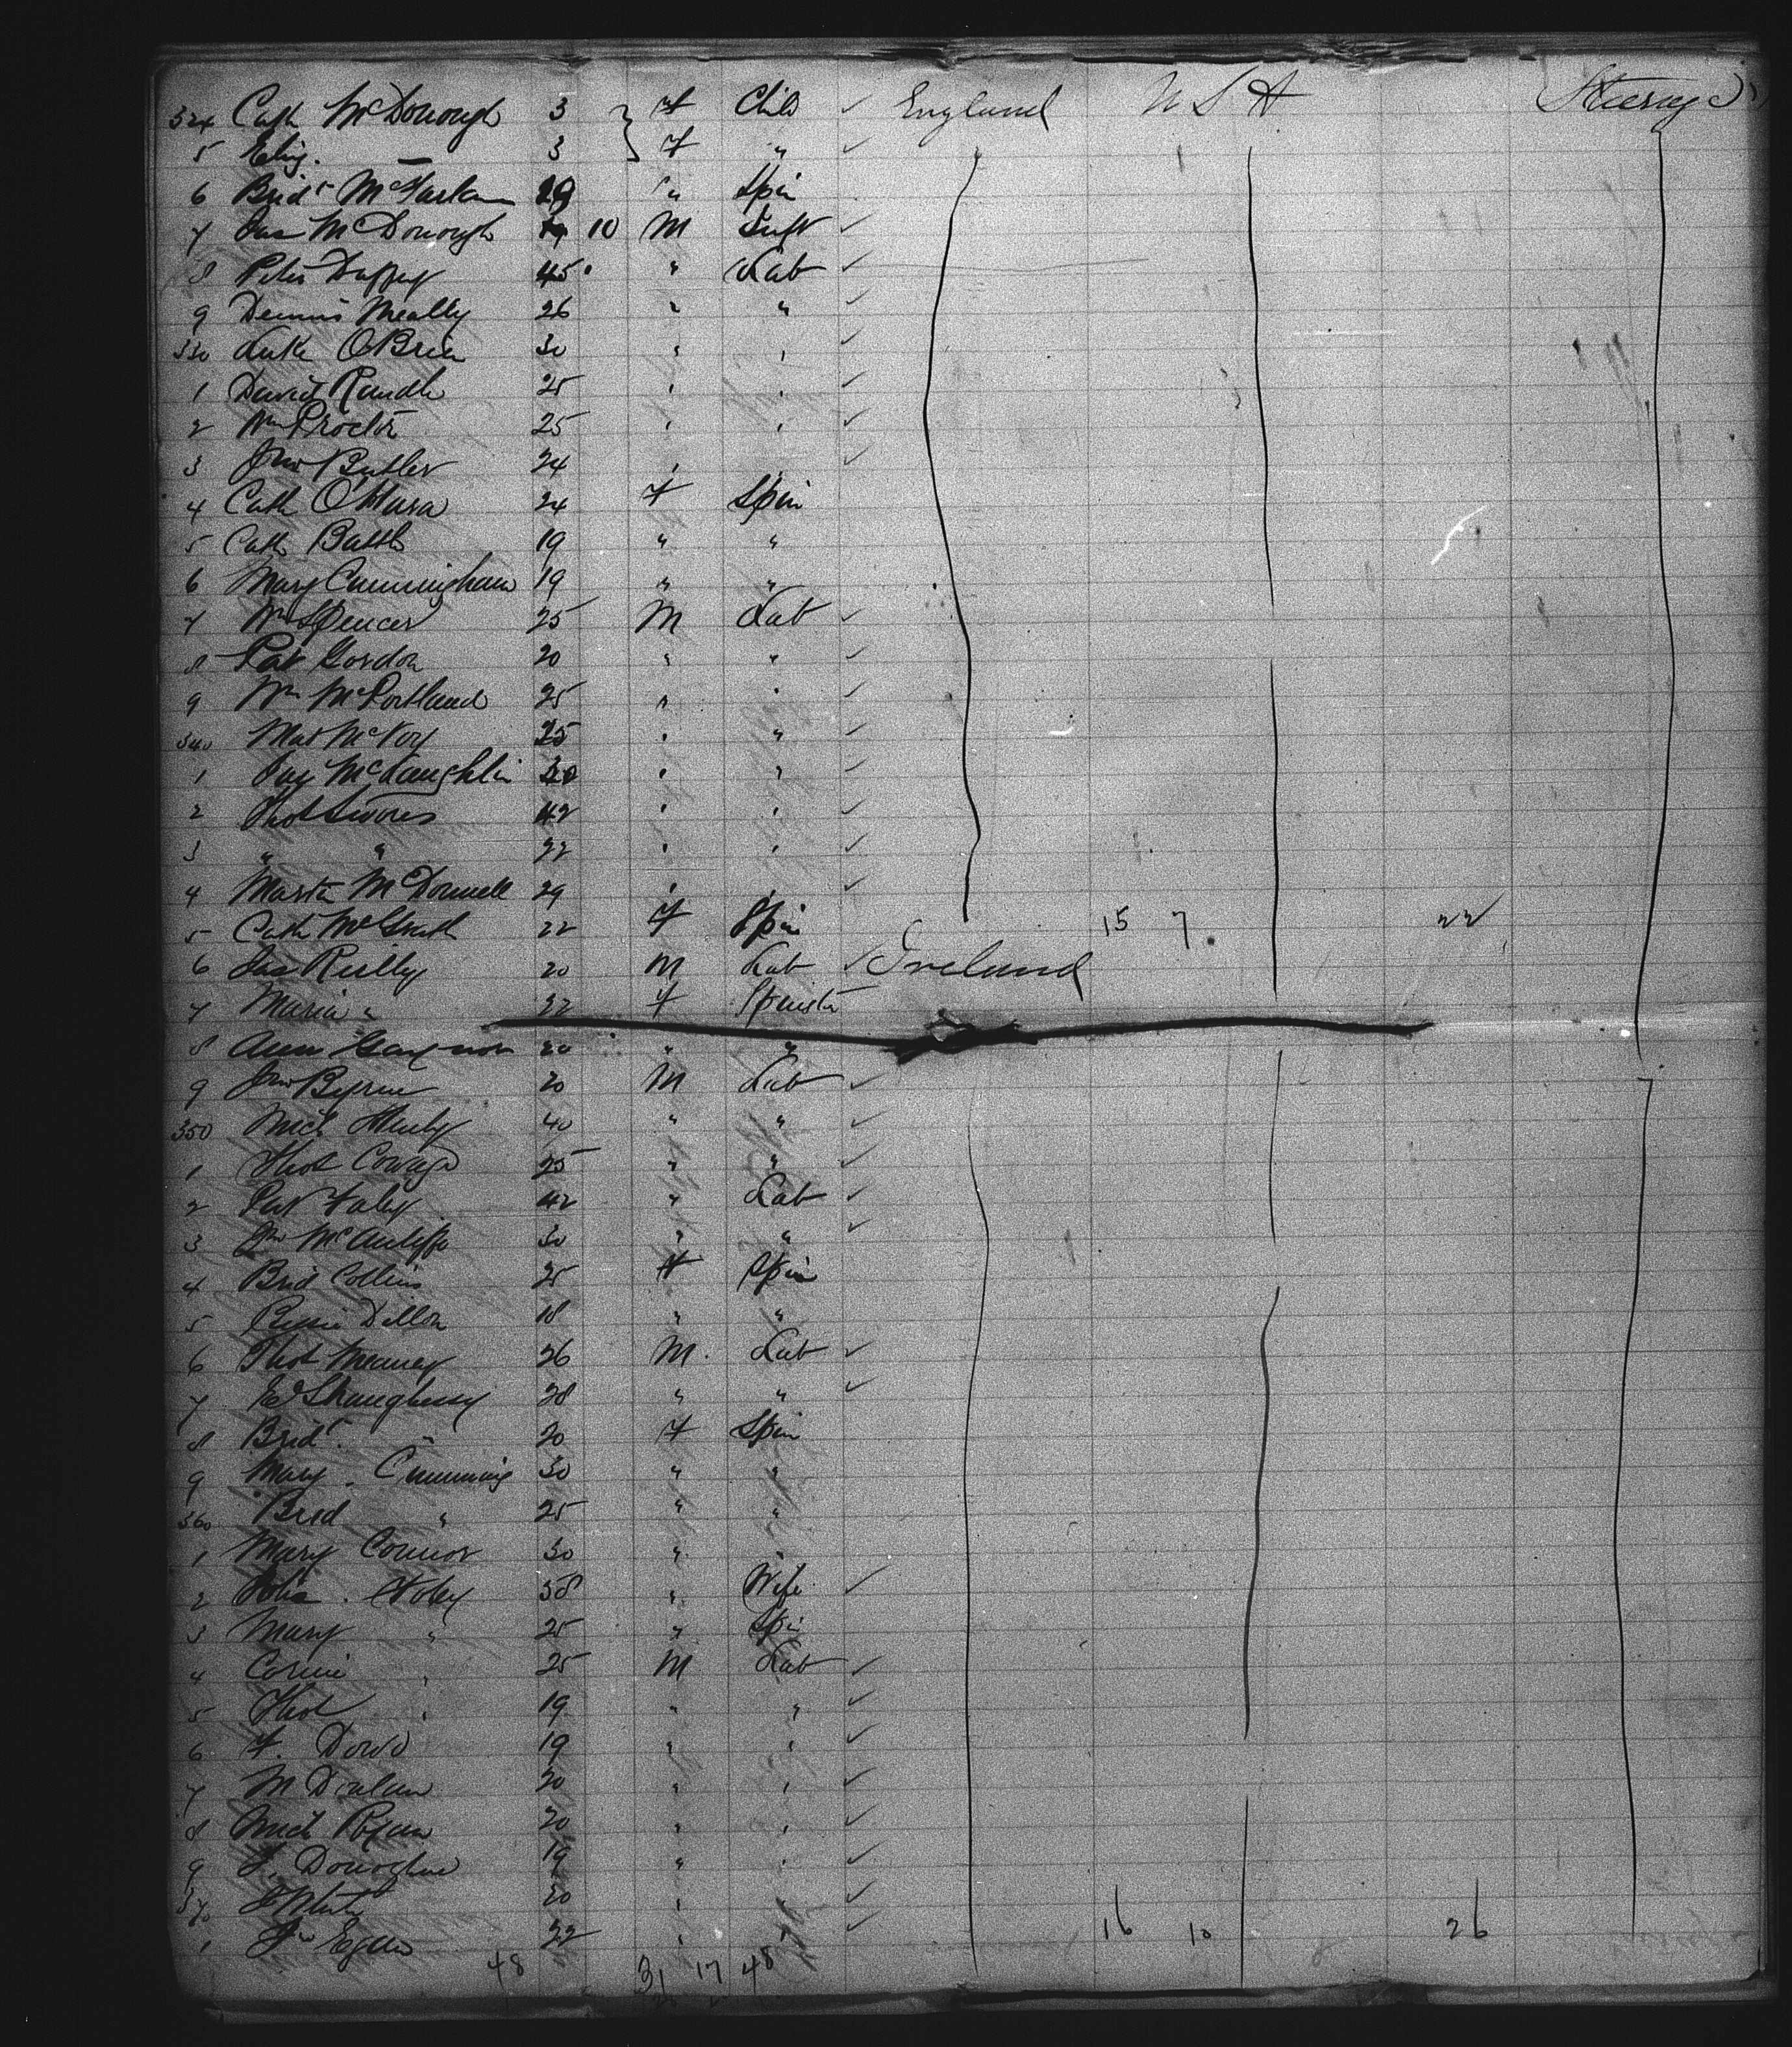 324 Cath McDonough 3 F Child ✓ England U S A Steerage
5 Eliz. 3 F " ✓
6 Brid McFarlan 19 " Spin
7 Jas McDonough 10 M Inft ✓
8 Peter Duffey 45 " Lab ✓
9 Dennis Meally 26 " " ✓
330 Luke OBrien 30 " " ✓
1 David Randle 25 " " ✓
2 Wm Proctor 25 " " ✓
3 Jno Butler 24 " " ✓
4 Cath OHara 24 F Spin
5 Cath Battle 19 " "
6 Mary Cunningham 19 " "
7 Wm Spencer 25 M Lab ✓
8 Pat Gordon 20 " " ✓
9 Wm McPortland 25 " " ✓
340 Mat McVoy 25 " " ✓
1 McLaughlin 30 " " ✓
2 Thos 42 " " ✓
3 " " 22 " " ✓
4 Martin McDonnell 29 " " ✓
5 Cath McGrath 22 F Spin 15 7 22
6 Jas Reilly 20 M Lab ✓ Ireland
7 Maria " 22 F Spinster
8 Ann 20 " "
9 Jno Byrne 20 M Lab ✓
350 Mich Henly 40 " " ✓
1 Thos 25 " " ✓
2 Pat Foley 42 " Lab ✓
3 Jno McAuliffe 30 " " ✓
4 Brid Collins 25 F Spin
5 Bessie Dillon 18 " "
6 Thos Meaney 26 M. Lab ✓
7 Ed Shaughnessy 28 " " ✓
8 Brid " 20 F Spin
9 Mary Cumming 30 " "
360 Brid " 25 " "
1 Mary Connor 30 "
2 58 " Wife ✓
3 Mary " 25 " Spin
4 " 25 M Lab ✓
5 Thos " 19 " " ✓
6 F. Dowd 19 " " ✓
7 M 20 " " ✓
8 Mich 20 " " ✓
9 Donoghue 19 " " ✓
370 White 20 " " ✓
1 Jno Egan 22 " " ✓ 16 10 26
48 31 17 48